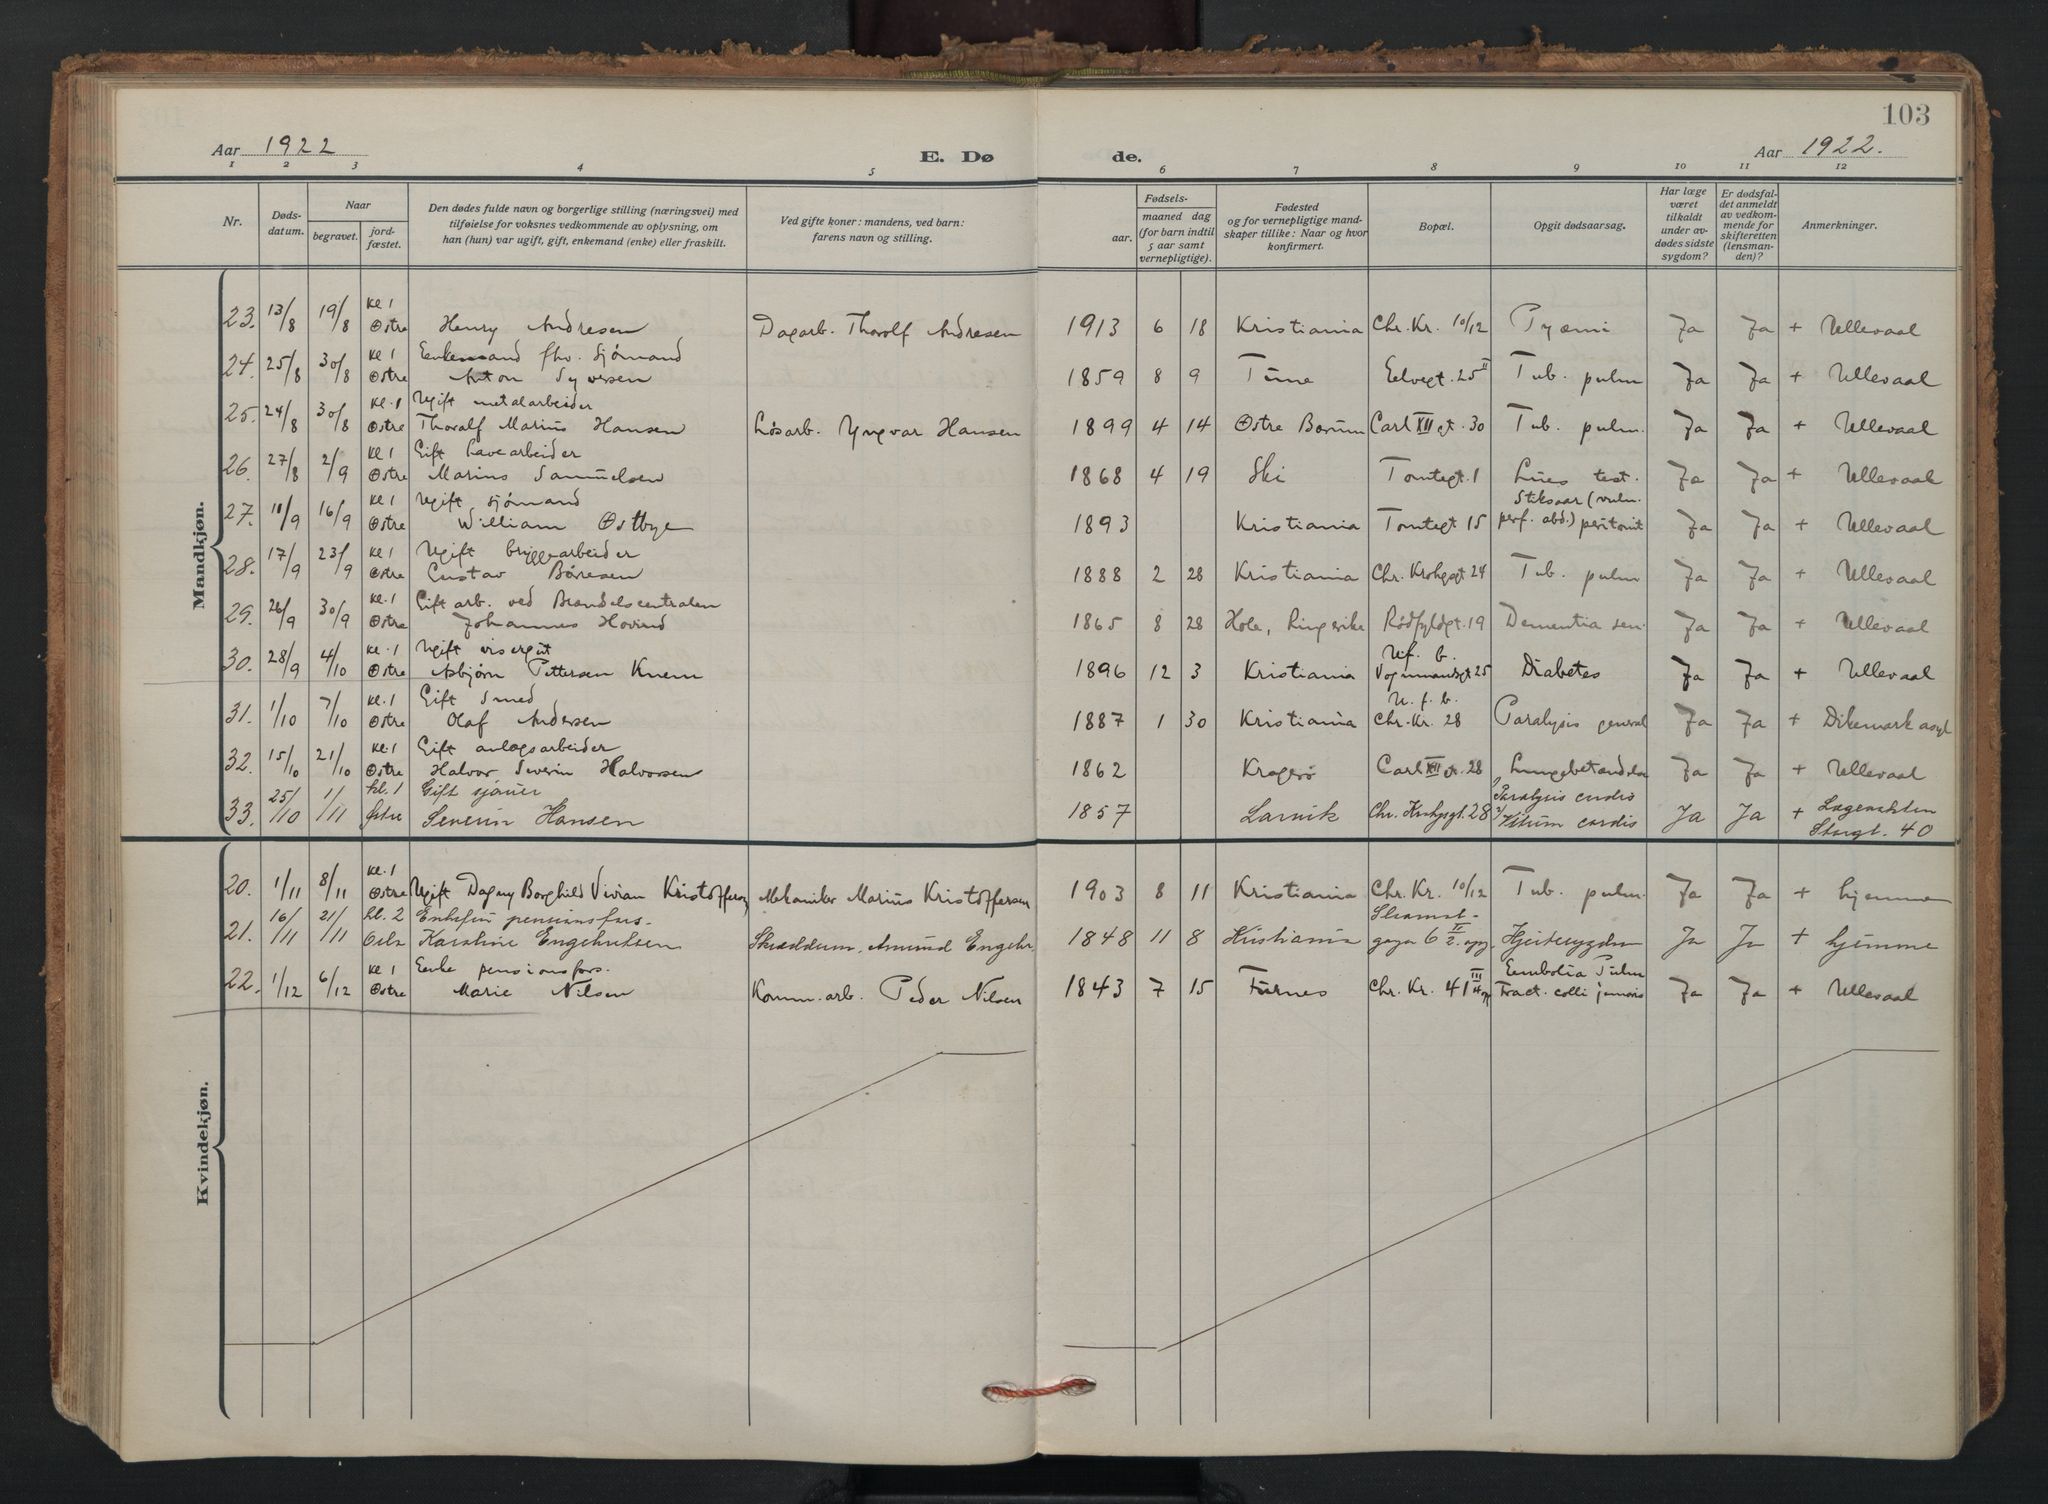 103
Aar 1922
E. Dø
de.
Aar 1922.
1 2 3 4 5 6 7 8 9 10 11 12
Nr.
Døds-
datum.
Naar
begravet.
jord-
fæstet.
Den dødes fulde navn og borgerlige stilling (næringsvei) med
tilføielse for voksnes vedkommende av oplysning, om
han (hun) var ugift, gift, enkemand (enke) eller fraskilt.
Ved gifte koner: mandens, ved barn:
farens navn og stilling.
Fødsels-
aar.
maaned dag
(for barn indtil
5 aar samt
vernepligtige).
Fødested
og for vernepligtige mand-
skaper tillike: Naar og hvor
konfirmert.
Bopæl.
Opgit dødsaarsag.
Har læge
været
tilkaldt
under av-
dødes sidste
sygdom?
Er dødsfal-
det anmeldt
av vedkom-
mende for
skifteretten
(lensman-
den)?
Anmerkninger.
Mandkjøn.
kl 1
23. 13/8 19/8 Østre Henry Andresen Dagarb. Thorolf Andresen 1913 6 18 Kristiania Chr. Kr. 10/12 Pyæmi Ja Ja + Ullevaal
kl 1 Enkemand fhv. sjømand
24. 25/8 30/8 Østre Anton Syversen 1859 8 9 Tune Eelvegt. 25 II Tub. pulm Ja Ja + Ullevaal
kl. 1 Ugift metalarbeider
25. 24/8 30/8 Østre Thoralf Marius Hansen Løsarb. Yngvar Hansen 1899 4 14 Østre Bærum Carl XII gt. 30 Tub. pulm. Ja Ja + Ullevaal
kl 1 Gift havearbeider
26. 27/8 2/9 Østre Marius Samuelsen 1868 4 19 Ski Tomtegt. 1 Lues test. Ja Ja + Ullevaal
kl 1 Ugift sjømand Stiksaar (vuln.
27. 11/9 16/9 Østre William Østbye 1893 Kristiania Tomtegt 15 perf. abd.) peritonit Ja Ja + Ullevaal
kl 1 Ugift bryggearbeider
28. 17/9 23/9 Østre Gustav Børresen 1888 2 28 Kristiania Chr. Krohgsgt 24 Tub. pulm Ja Ja + Ullevaal
kl. 1 Gift arb. ved Brændelscentralen
29. 26/9 30/9 Østre Johannes Hovind 1865 8 28 Hole, Ringerike Rødfyldgt. 19 Dementia sen. Ja Ja + Ullevaal
kl. 1 Ugift visergut U. f. b.
30. 28/9 4/10 Østre Asbjørn Pettersen Knem 1896 12 3 Kristiania Vognmandsgt 25 Diabetes Ja Ja + Ullevaal
kl. 1 Gift smed U. f. b.
31. 1/10 7/10 Østre Olaf Andersen 1887 1 30 Kristiania Chr. Kr. 28 Paralysis general Ja Ja + Dikemark asyl
kl. 1 Gift anlægsarbeider
32. 15/10 21/10 Østre Halvor Severin Halvorsen 1862 Kragerø Carl XII gt. 28 Lungebetændelse Ja Ja + Ullevaal
kl. 1 Gift sjauer Paralysis cordis
33. 25/10 1/11 Østre Severin Hansen 1857 Larvik Chr. Krohgsgt. 28 Vitium cordis Ja Ja + Lægevakten
Storgt. 40
Kvindekjøn.
kl. 1
20. 1/11 8/11 Østre Ugift Dagny Borghild Vivian Kristoffersen Mekaniker Marius Kristoffersen 1903 8 11 Kristiania Chr. Kr. 10/12 Tub. pulm. Ja Ja + hjemme
kl. 2 Enkefru pensionsfors.
21. 16/11 21/11 Oslo Karoline Engebretsen Skrædderm. Amund Engebr. 1848 11 8 Kristiania gaya 6 II 2. opg. Hjertesygdom Ja Ja + hjemme
kl 1 Enke pensionsfors. Embolia Pulm
22. 1/12 6/12 Østre Marie Nilsen Komm. arb. Peder Nilsen 1843 7 15 Furnes Chr. Kr. 41 III Fract. colli femoris Ja Ja + Ullevaal